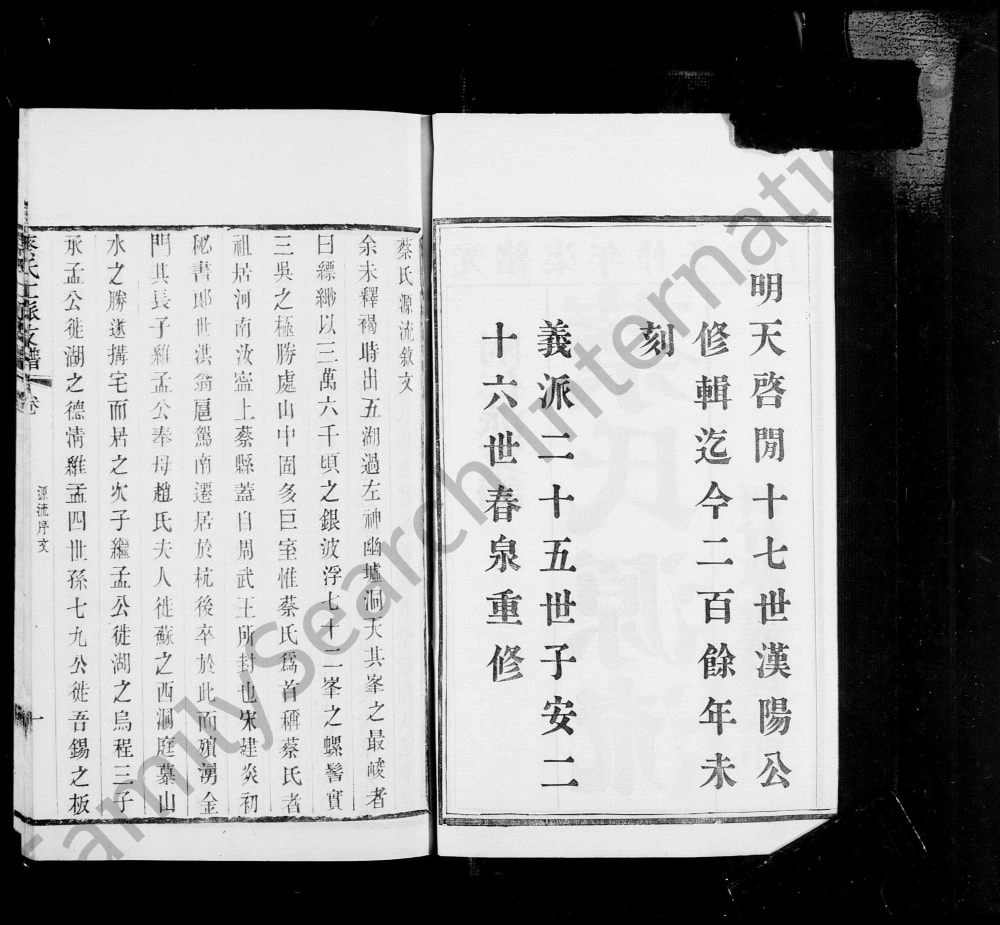 明天啓閒十七世漢陽公
修輯迄今二百餘年未
刻
義派二十五世子安二
十六世春泉重修
蔡氏源流敘文
余未釋褐時出五湖過左神幽墟洞天其峯之最崚者
曰縹緲以三萬六千頃之銀波浮七十二峯之螺髻實
三吳之極勝處山中固多巨室惟蔡氏爲首稱蔡氏者
祖居河南汝寧上蔡縣蓋自周武王所封也宋建炎初
秘書郎世淇翁扈駕南遷居於杭後卒於此而殯湧金
門其長子維孟公奉母趙氏夫人徙蘇之西洞庭慕山
水之勝遂搆宅而居之次子繼孟公徙湖之烏程三子
承孟公徙湖之德清維孟四世孫七九公徙吾錫之板
蔡氏 派支譜 卷
源流序文
一
FamilySearch International